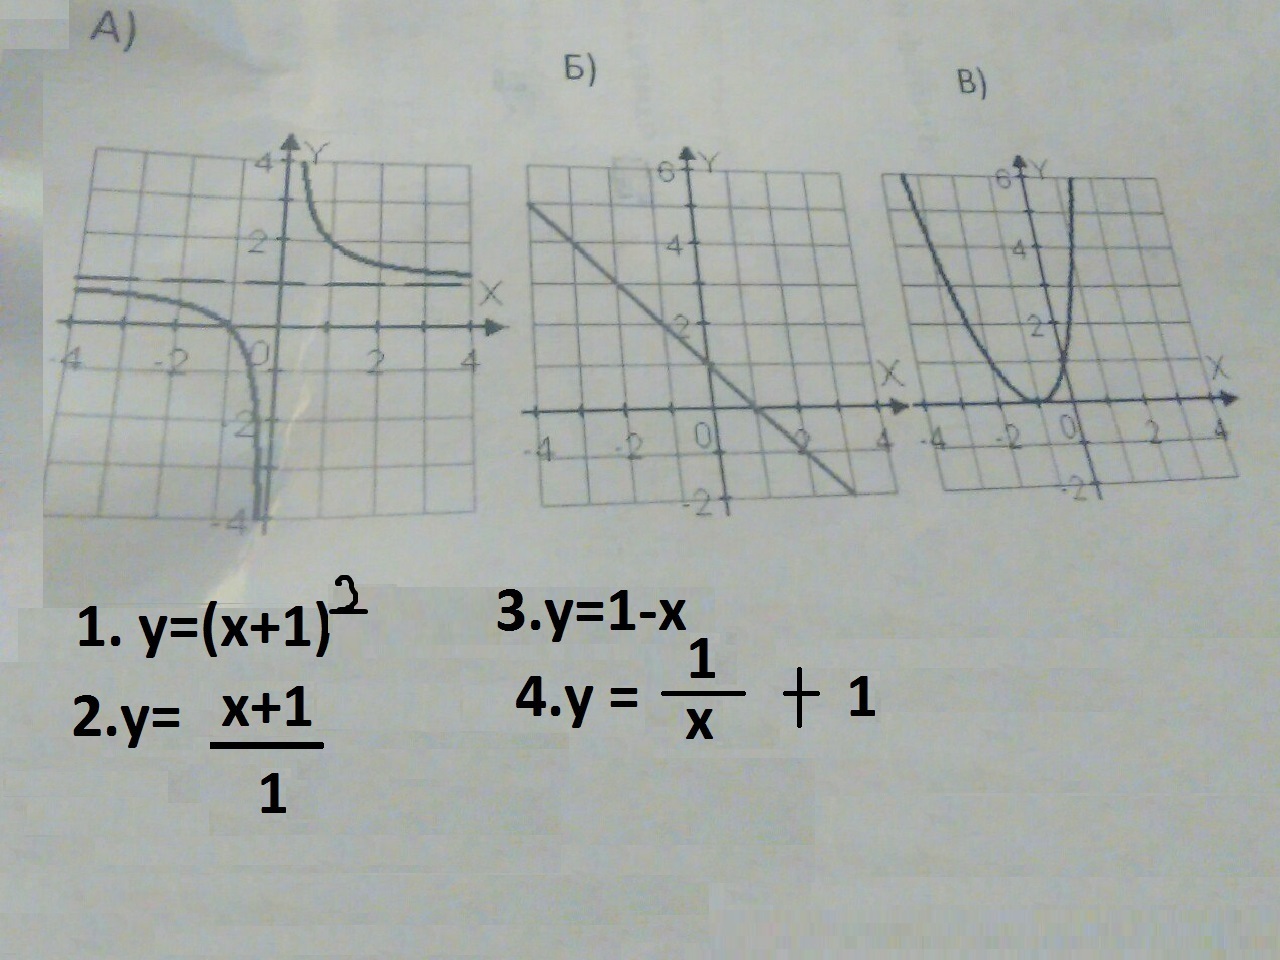 А)
Б)
В)
4 Y
2
X
-4 -2 0 2 4
-2
-4
6 Y
4
2
X
-4 -2 0 2 4
-2
6 Y
4
2
X
-4 -2 0 2 4
-2
1. y=(x+1)²
3.y=1-x
2.y= x+1
1
4.y = 1
x + 1